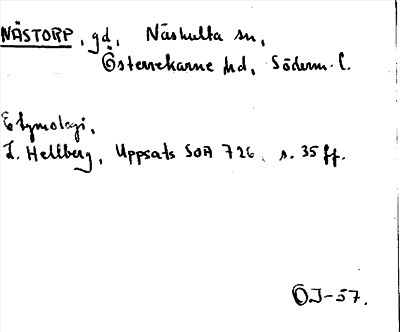 NÄSTORP, gd, Näshulta sn,
Österrekarne hd, Söderm. l.
Etymologi,
L. Hellberg, Uppsats SOA 726, s. 35 ff.
ÖJ-57.